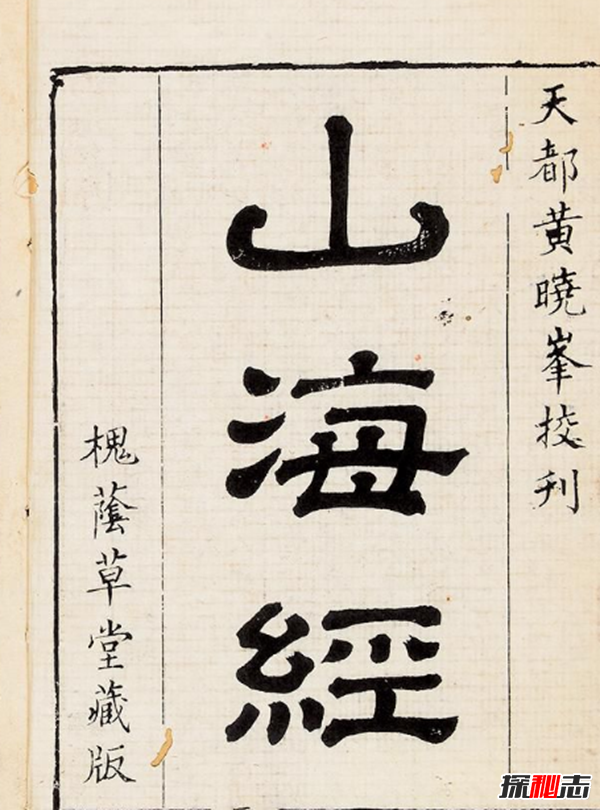 天都黄曉峯挍刊
山海經
槐蔭草堂藏版
探秘志